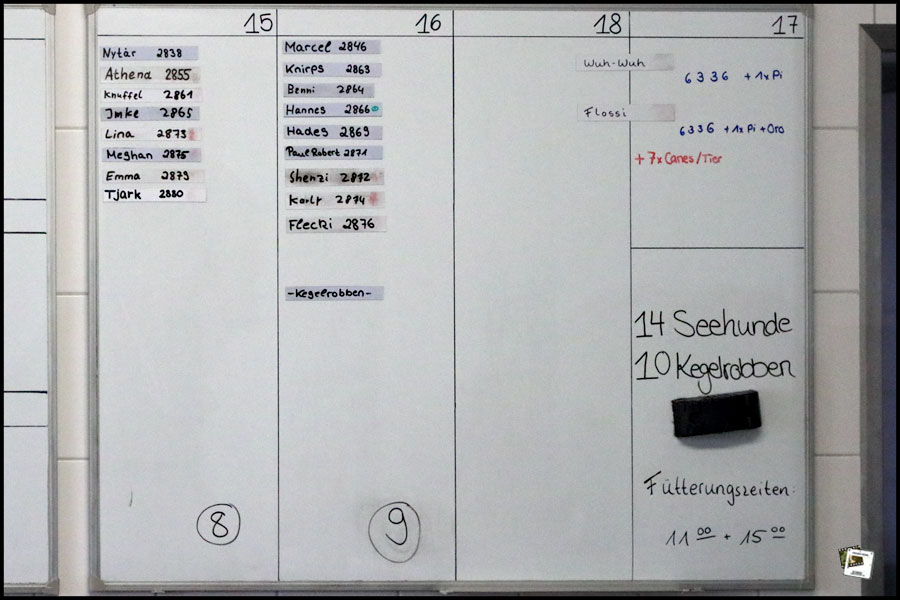 15
Nytár 2838
Athena 2855
Knuffel 2861
Imke 2865
Lina 2873
Meghan 2875
Emma 2879
Tjark 2880
8
16
Marcel 2846
Knirps 2863
Benni 2864
Hannes 2866
Hades 2869
Paul Robert 2871
Shenzi 2872
Karlz 2874
Flecki 2876
-Kegelrobben-
9
18
17
Wuh-Wuh
6336 + 1x Pi
Flossi
6336 + 1x Pi + Oro
+ 7x Canes/Tier
14 Seehunde
10 Kegelrobben
Fütterungszeiten:
11 00 + 15 00